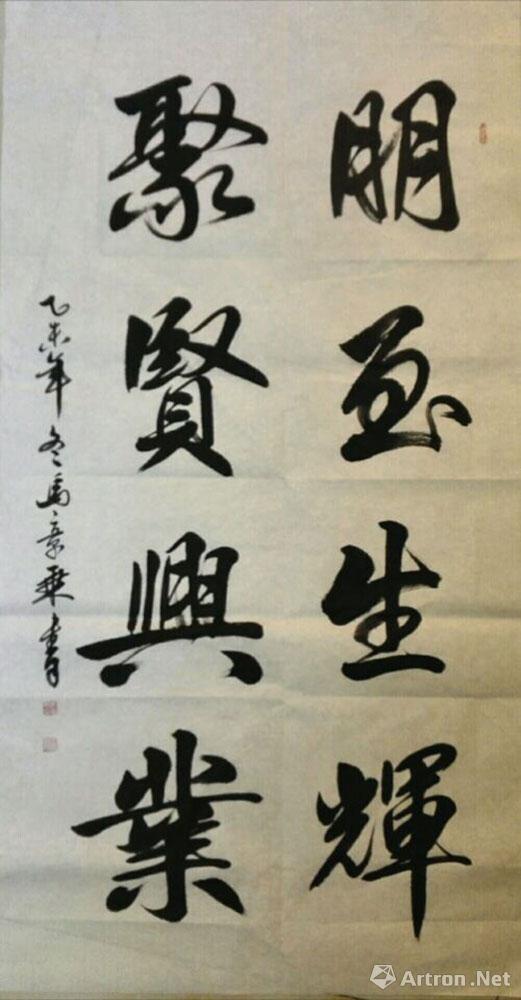 朋至生輝
聚賢興業
乙未年冬馬書
Artron.Net